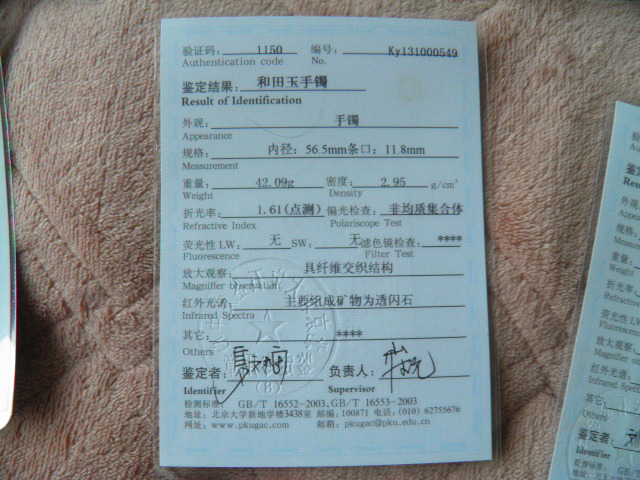 验证码: 1150 编号: Ky131000549
Authentication code No.
鉴定结果: 和田玉手镯
Result of Identification
外观: 手镯
Appearance
规格: 内径: 56.5mm条口: 11.8mm
Measurement
重量: 42.09g 密度: 2.95 g/cm³
Weight Density
折光率: 1.61(点测) 偏光检查: 非均质集合体
Refractive Index Polariscope Test
荧光性 LW: 无 SW: 无 滤色镜检查: ****
Fluorescence Filter Test
放大观察: 具纤维交织结构
Magnifier observation
红外光谱: 主要组成矿物为透闪石
Infrared Spectra
其它: ****
Others
鉴定者: 负责人:
Identifier Supervisor
检测标准: GB/T 16552-2003, GB/T 16553-2003
地址: 北京大学新地学楼3438室 邮编: 100871 电话: (010) 62755676
网址: www.pkugac.com 邮箱: pkugac@pku.edu.cn
外观
Appearance
规格:
Measurement
重量:
Weight
折光率
Refractive
荧光性 LW
Fluorescence
放大观察
Magnifier
红外光谱
Infrared Spectra
其它:
Others
鉴定者:
Identifier